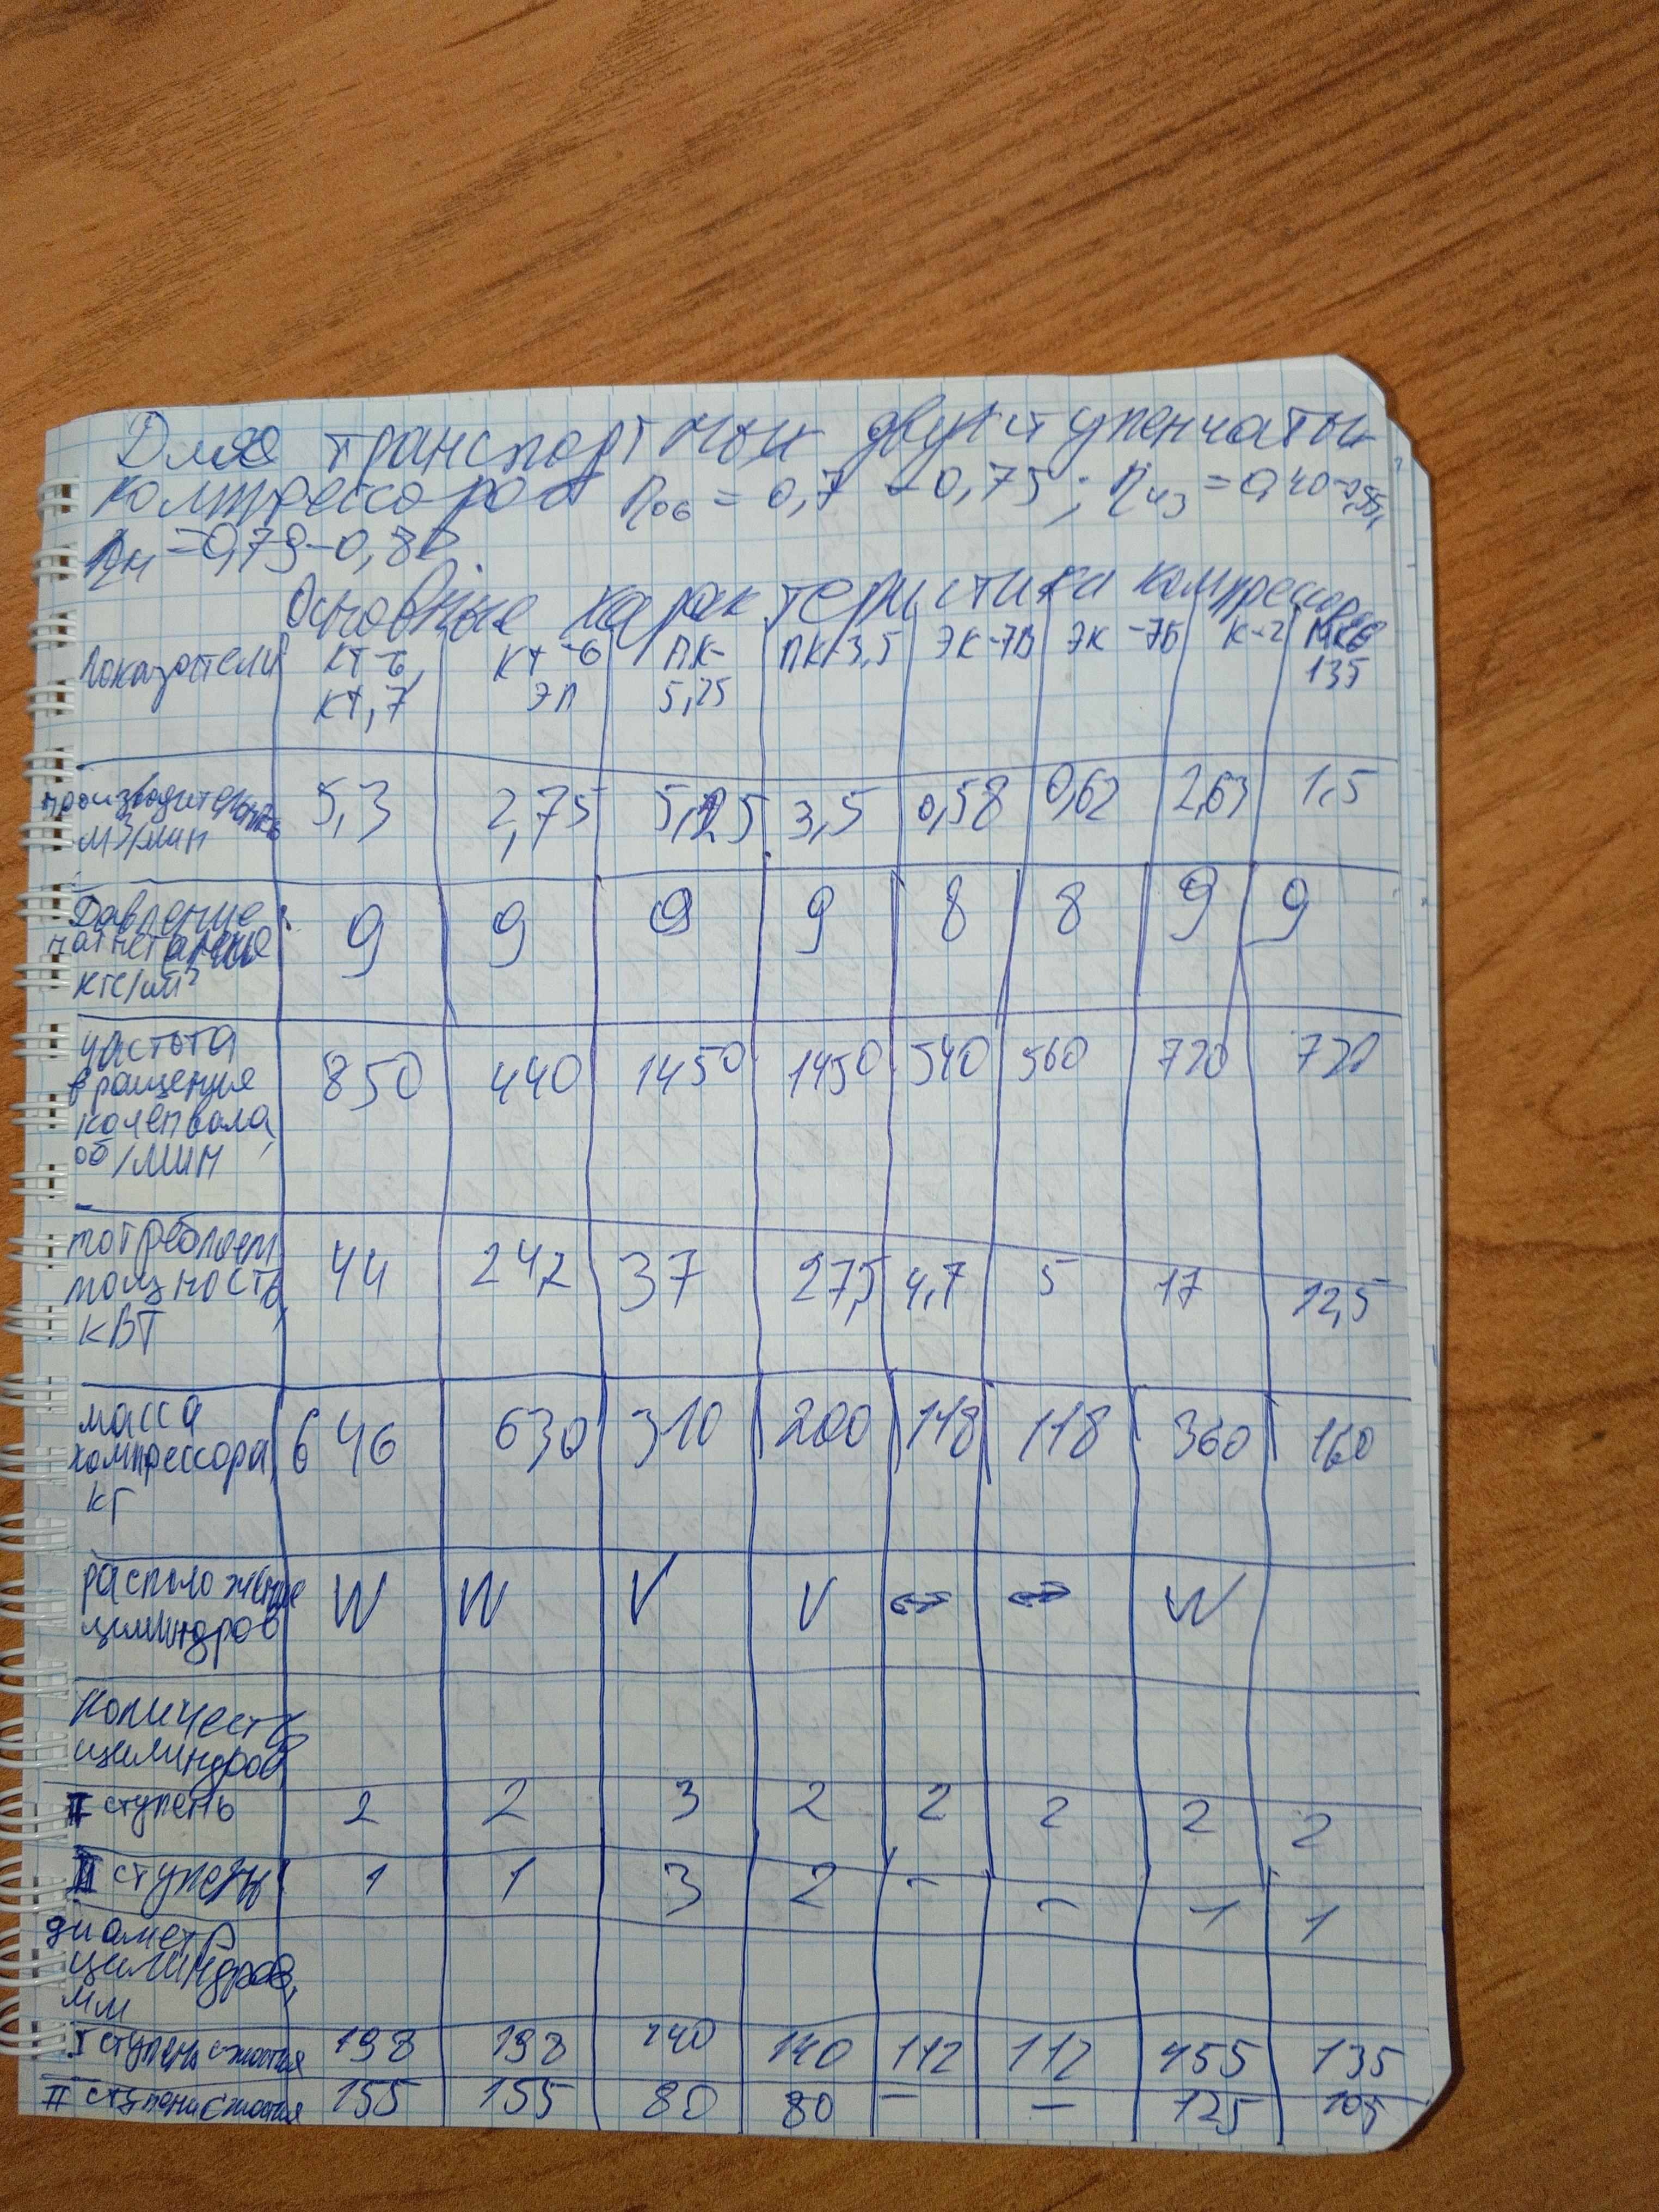 Для транспортных двухступенчатых
компрессоров ηоб = 0,7 - 0,75; ηиз = 0,40-0,55,
ηн = 0,79-0,82
Основные характеристика компрессоров
Показатели КТ-6, КТ-6 ПК- ПК-3,5 ЭК-7В ЭК-7Б К-2 МКО
КТ,7 ЭЛ 5,25 135
производительность 5,3 2,75 5,25 3,5 0,58 0,62 2,63 1,5
м3/мин
Давление 9 9 9 9 8 8 9 9
нагнетания
кгс/см²
частота 850 440 1450 1450 540 560 720 720
вращения
коленвала,
об/мин
потребляем 44 242 37 27,5 4,7 5 17 12,5
мощность,
кВТ
масса 646 630 310 200 118 118 360 160
компрессора,
кг
расположение W W V V ↔ ↔ W
цилиндров
количеств
цилиндров,
I ступень 2 2 3 2 2 2 2 2
II ступень 1 1 3 2 - - 1 1
диаметр
цилиндров,
мм
I ступень сжатия 198 198 140 140 112 112 155 135
II ступень сжатия 155 155 80 80 — — 125 105